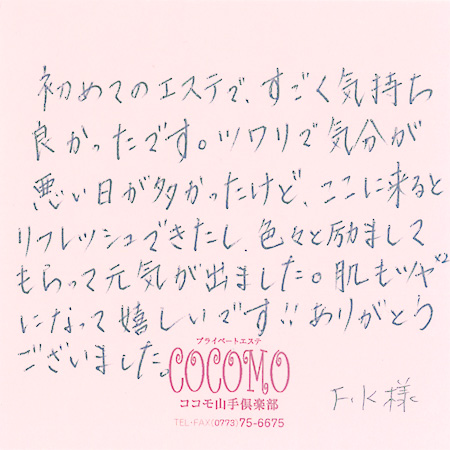 初めてのエステで、すごく気持ち
良かったです。ツワリで気分が
悪い日が多かったけど、ここに来ると
リフレッシュできたし、色々と励まして
もらって元気が出ました。肌もツヤ²
になって嬉しいです!!ありがとう
ございました。
プライベートエステ
COCOMO
ココモ山手倶楽部
TEL・FAX(0773)75-6675
F・K様